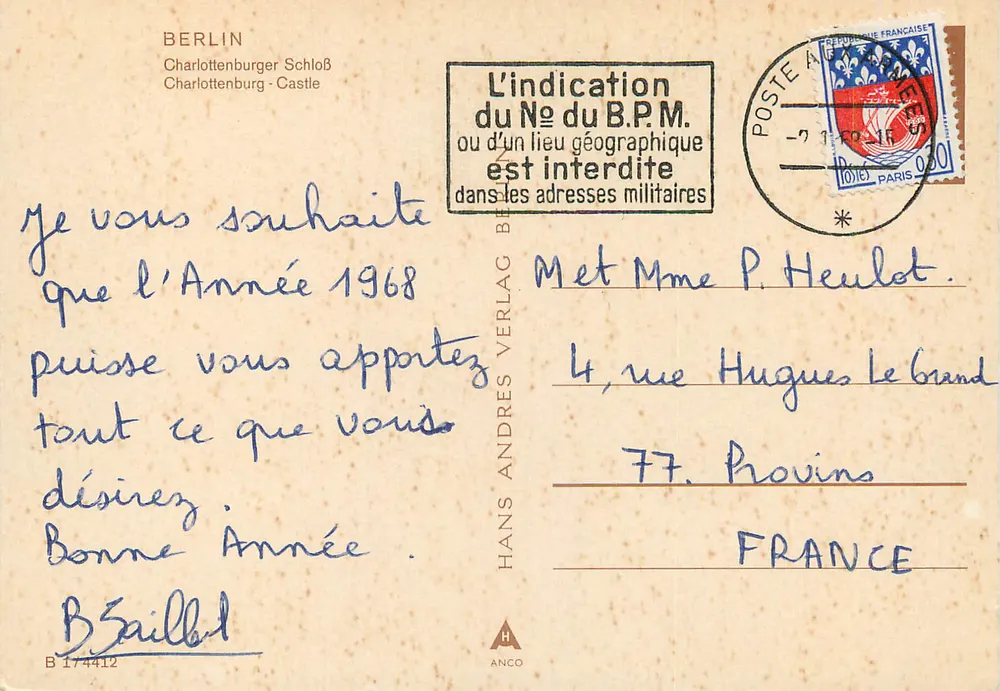 BERLIN
Charlottenburger Schloß
Charlottenburg - Castle
L'indication
du Nº du B.P.M.
ou d'un lieu géographique
est interdite
dans les adresses militaires
POSTE AUX ARMEES
RÉPUBLIQUE FRANÇAISE
POSTES
PARIS
0,30
Je vous souhaite
que l'Année 1968
puisse vous apportez
tout ce que vous
désirez.
Bonne Année.
M et Mme P. Heulot.
4, rue Hugues Le Grand
77. Provins
FRANCE
HANS ANDRES VERLAG BERLIN
H
ANCO
B 174412